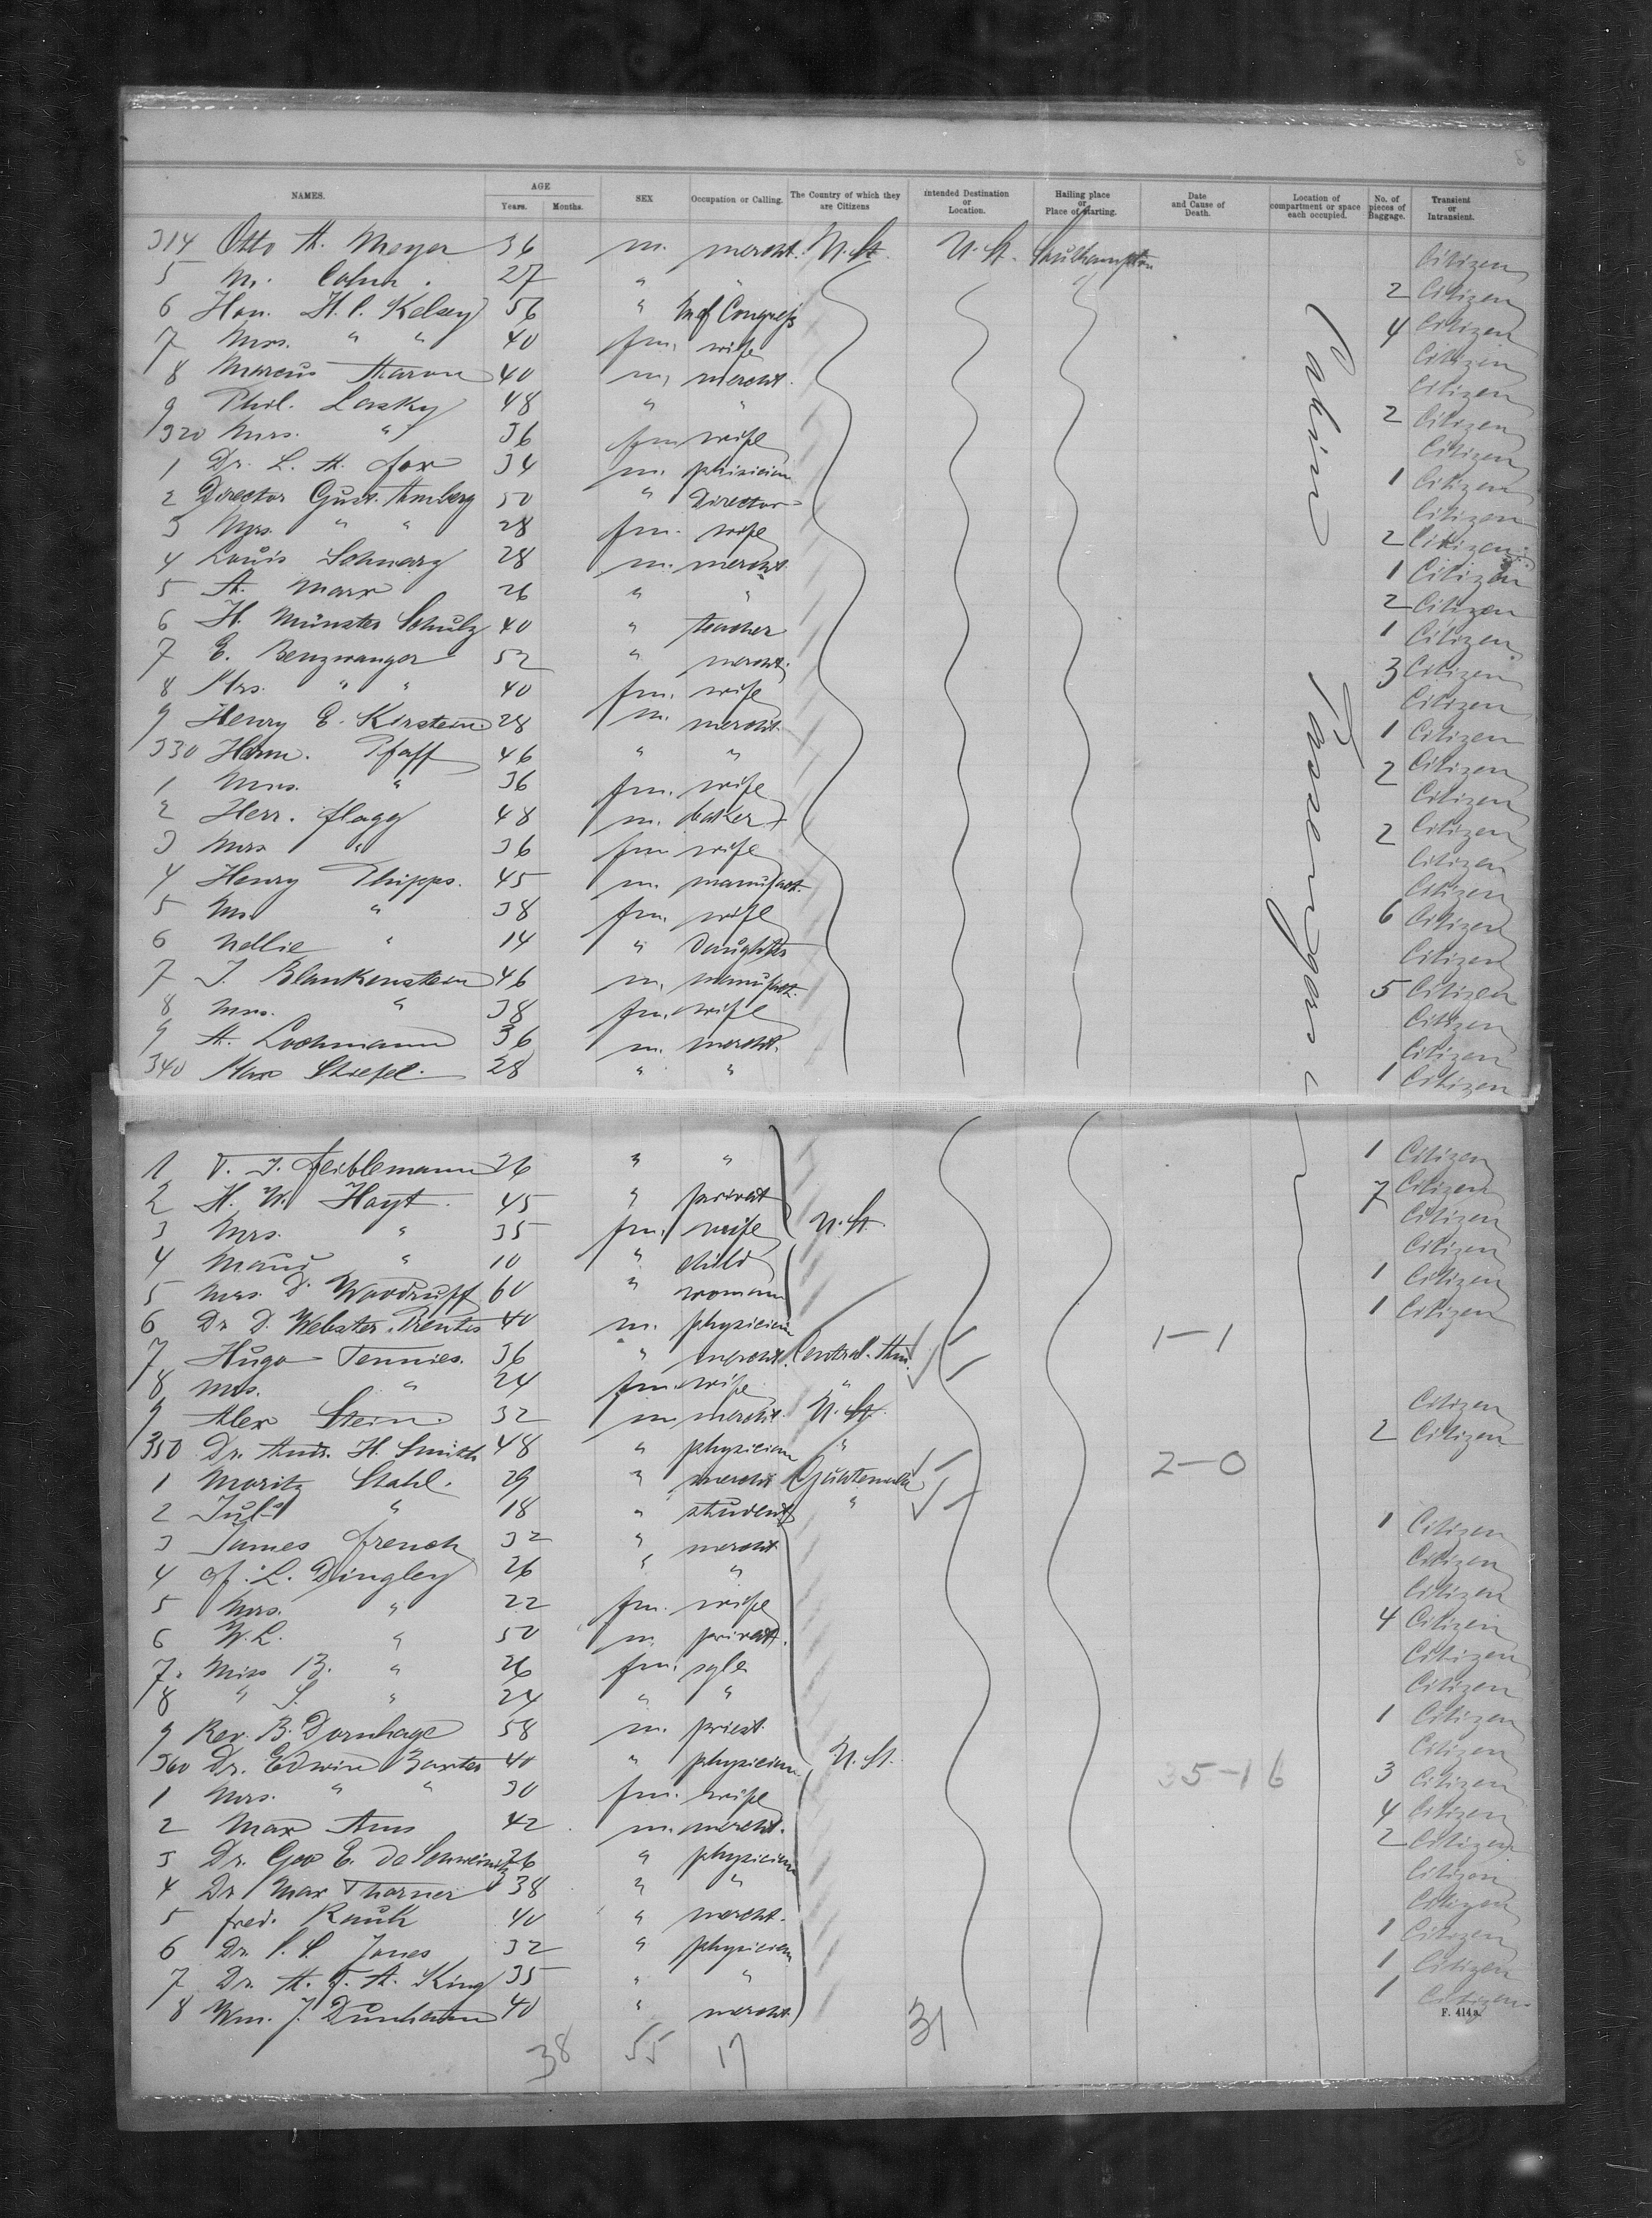 NAMES. AGE Years. Months. SEX Occupation or Calling. The Country of which they are Citizens Intended Destination or Location. Hailing place or Place of starting. Date and Cause of Death. Location of compartment or space each occupied. No. of pieces of Baggage. Transient or Intransient.
314 Otto A. Meyer 36 m. mercht. U. St. U. St. Southampton Citizen
5 M. Cohn. 27 " " 2 Citizen
6 Hon. H. C. Kelsey 56 " M of Congress 4 Citizen
7 Mrs. " " 40 fm. wife Citizen
8 Marcus Aaron 40 m. mercht. Citizen
9 Phil. Lasky 48 " " 2 Citizen
320 Mrs. " 36 fm wife Citizen
1 Dr. L. A. Fox 34 m. phisician 1 Citizen
2 Director Gust. Amberg 50 " Director Citizen
3 Mrs. " " 28 fm. wife 2 Citizen
4 Louis Schwarz 28 m. mercht. 1 Citizen
5 A. Marx 26 " " 2 Citizen
6 H. Münster Schulz 40 " teacher 1 Citizen
7 E. Benzwanger 52 " mercht. 3 Citizen
8 Mrs. " " 40 fm. wife Citizen
9 Henry E. Kirstein 28 m. mercht. 1 Citizen
330 Herm. Pfaff 46 " " 2 Citizen
1 Mrs. " 36 fm. wife Citizen
2 Herr. Flagg 48 m. 2 Citizen
3 Mrs " 36 fm wife Citizen
4 Henry Phipps. 45 m. manufact. Citizen
5 Mrs " 38 fm. wife 6 Citizen
6 Nellie " 14 " Daughter Citizen
7 J. Blankenstein 46 m. manufact. 5 Citizen
8 Mrs. " 38 fm. wife Citizen
9 A. Lochmann 36 m. mercht. Citizen
340 Max Stiefel. 28 " " 1 Citizen
Cabin Passengers
1 T. J. Feiblemann 26 " " 1 Citizen
2 H. W. Hoyt. 45 " privat 7 Citizen
3 Mrs. " 35 fm. wife U. St. Citizen
4 Maud " 10 " child Citizen
5 Mrs. D. Woodruff 60 " woman 1 Citizen
6 Dr D. Webster Prentis 40 m. physician 1 Citizen
7 Hugo Tennies. 36 " mercht. Central-Am. 1-1
8 Mrs. " 24 fm. wife "
9 Alex Stein. 32 m mercht. U. St. Citizen
350 Dr. Andr. H. Smith 48 " physician " 2 Citizen
1 Moritz Stahl. 29 " mercht Guatemala 2-0
2 Jul. " 18 " student "
3 James French 32 " mercht 1 Citizen
4 F. L. Dingley 26 " " Citizen
5 Mrs. " 22 fm. wife Citizen
6 W. L. " 50 m privat. 4 Citizen
7. Miss B. " 26 fm. sgle Citizen
8 " S. " 24 " " Citizen
9 Rev. B. Dornhage 58 m. priest. 1 Citizen
360 Dr. Edwin Baxter 40 " physician U. St. Citizen
1 Mrs. " " 30 fm. wife 35-16 3 Citizen
2 Max Ams 42 m. mercht. 4 Citizen
3 Dr. Geo E. De Schweinitz 26 " physician 2 Citizen
4 Dr Max Thorner 38 " " Citizen
5 Fred. Rauh 40 " mercht. Citizen
6 Dr. Jones 32 " physician 1 Citizen
7 Dr. A. F. A. King 35 " " 1 Citizen
8 Wm. J. Dunham 40 " mercht 1 Citizen
F. 414a.
38 55 17 31